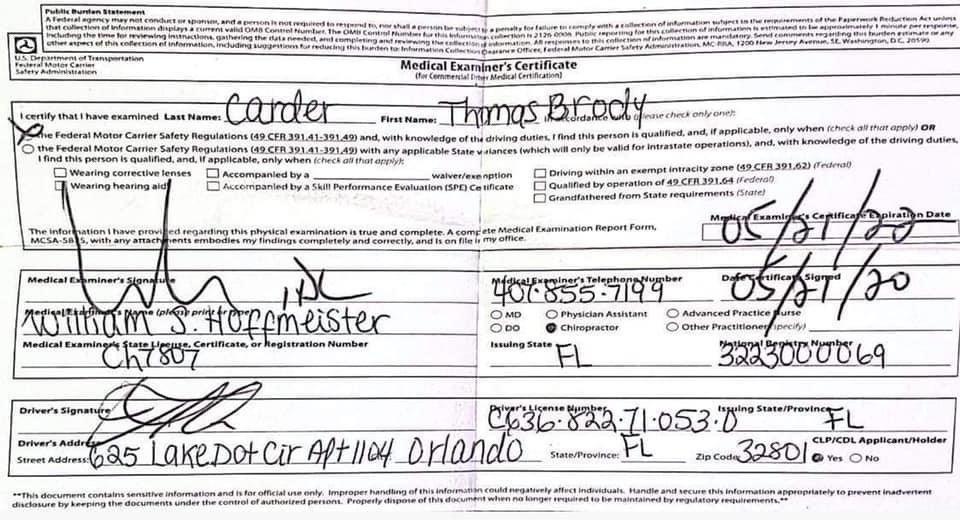 Public Burden Statement
A Federal agency may not conduct or sponsor, and a person is not required to respond to, nor shall a person be subject to a penalty for failure to comply with a collection of information subject to the requirements of the Paperwork Reduction Act unless
that collection of information displays a current valid OMB Control Number. The OMB Control Number for this information collection is 2126-0006. Public reporting for this collection of information is estimated to be approximately 1 minute per response,
including the time for reviewing instructions, gathering the data needed, and completing and reviewing the collection of information. All responses to this collection of information are mandatory. Send comments regarding this burden estimate or any
other aspect of this collection of information, including suggestions for reducing this burden to: Information Collection Clearance Officer, Federal Motor Carrier Safety Administration, MC-RRA, 1200 New Jersey Avenue, SE, Washington, D.C. 20590.
U.S. Department of Transportation
Federal Motor Carrier
Safety Administration
Medical Examiner's Certificate
(for Commercial Driver Medical Certification)
I certify that I have examined Last Name: Carder First Name: Thomas Brody in accordance with (please check only one):
the Federal Motor Carrier Safety Regulations (49 CFR 391.41-391.49) and, with knowledge of the driving duties, I find this person is qualified, and, if applicable, only when (check all that apply) OR
the Federal Motor Carrier Safety Regulations (49 CFR 391.41-391.49) with any applicable State variances (which will only be valid for intrastate operations), and, with knowledge of the driving duties,
I find this person is qualified, and, if applicable, only when (check all that apply):
Wearing corrective lenses Accompanied by a waiver/exemption Driving within an exempt intracity zone (49 CFR 391.62) (Federal)
Wearing hearing aid Accompanied by a Skill Performance Evaluation (SPE) Certificate Qualified by operation of 49 CFR 391.64 (Federal)
Grandfathered from State requirements (State)
The information I have provided regarding this physical examination is true and complete. A complete Medical Examination Report Form,
MCSA-5875, with any attachments embodies my findings completely and correctly, and is on file in my office.
Medical Examiner's Certificate Expiration Date
05/21/22
Medical Examiner's Signature Medical Examiner's Telephone Number Date Certificate Signed
407-855-7199 05/21/20
Medical Examiner's Name (please print or type)
William J. Hoffmeister
MD Physician Assistant Advanced Practice Nurse
DO Chiropractor Other Practitioner (specify)
Medical Examiner's State License, Certificate, or Registration Number Issuing State National Registry Number
Ch7807 FL 3223000069
Driver's Signature Driver's License Number Issuing State/Province
C636-822-71-053-0 FL
Driver's Address CLP/CDL Applicant/Holder
Street Address: 625 Lake Dot Cir Apt 1104 Orlando State/Province: FL Zip Code 32801 Yes No
**This document contains sensitive information and is for official use only. Improper handling of this information could negatively affect individuals. Handle and secure this information appropriately to prevent inadvertent
disclosure by keeping the documents under the control of authorized persons. Properly dispose of this document when no longer required to be maintained by regulatory requirements.**